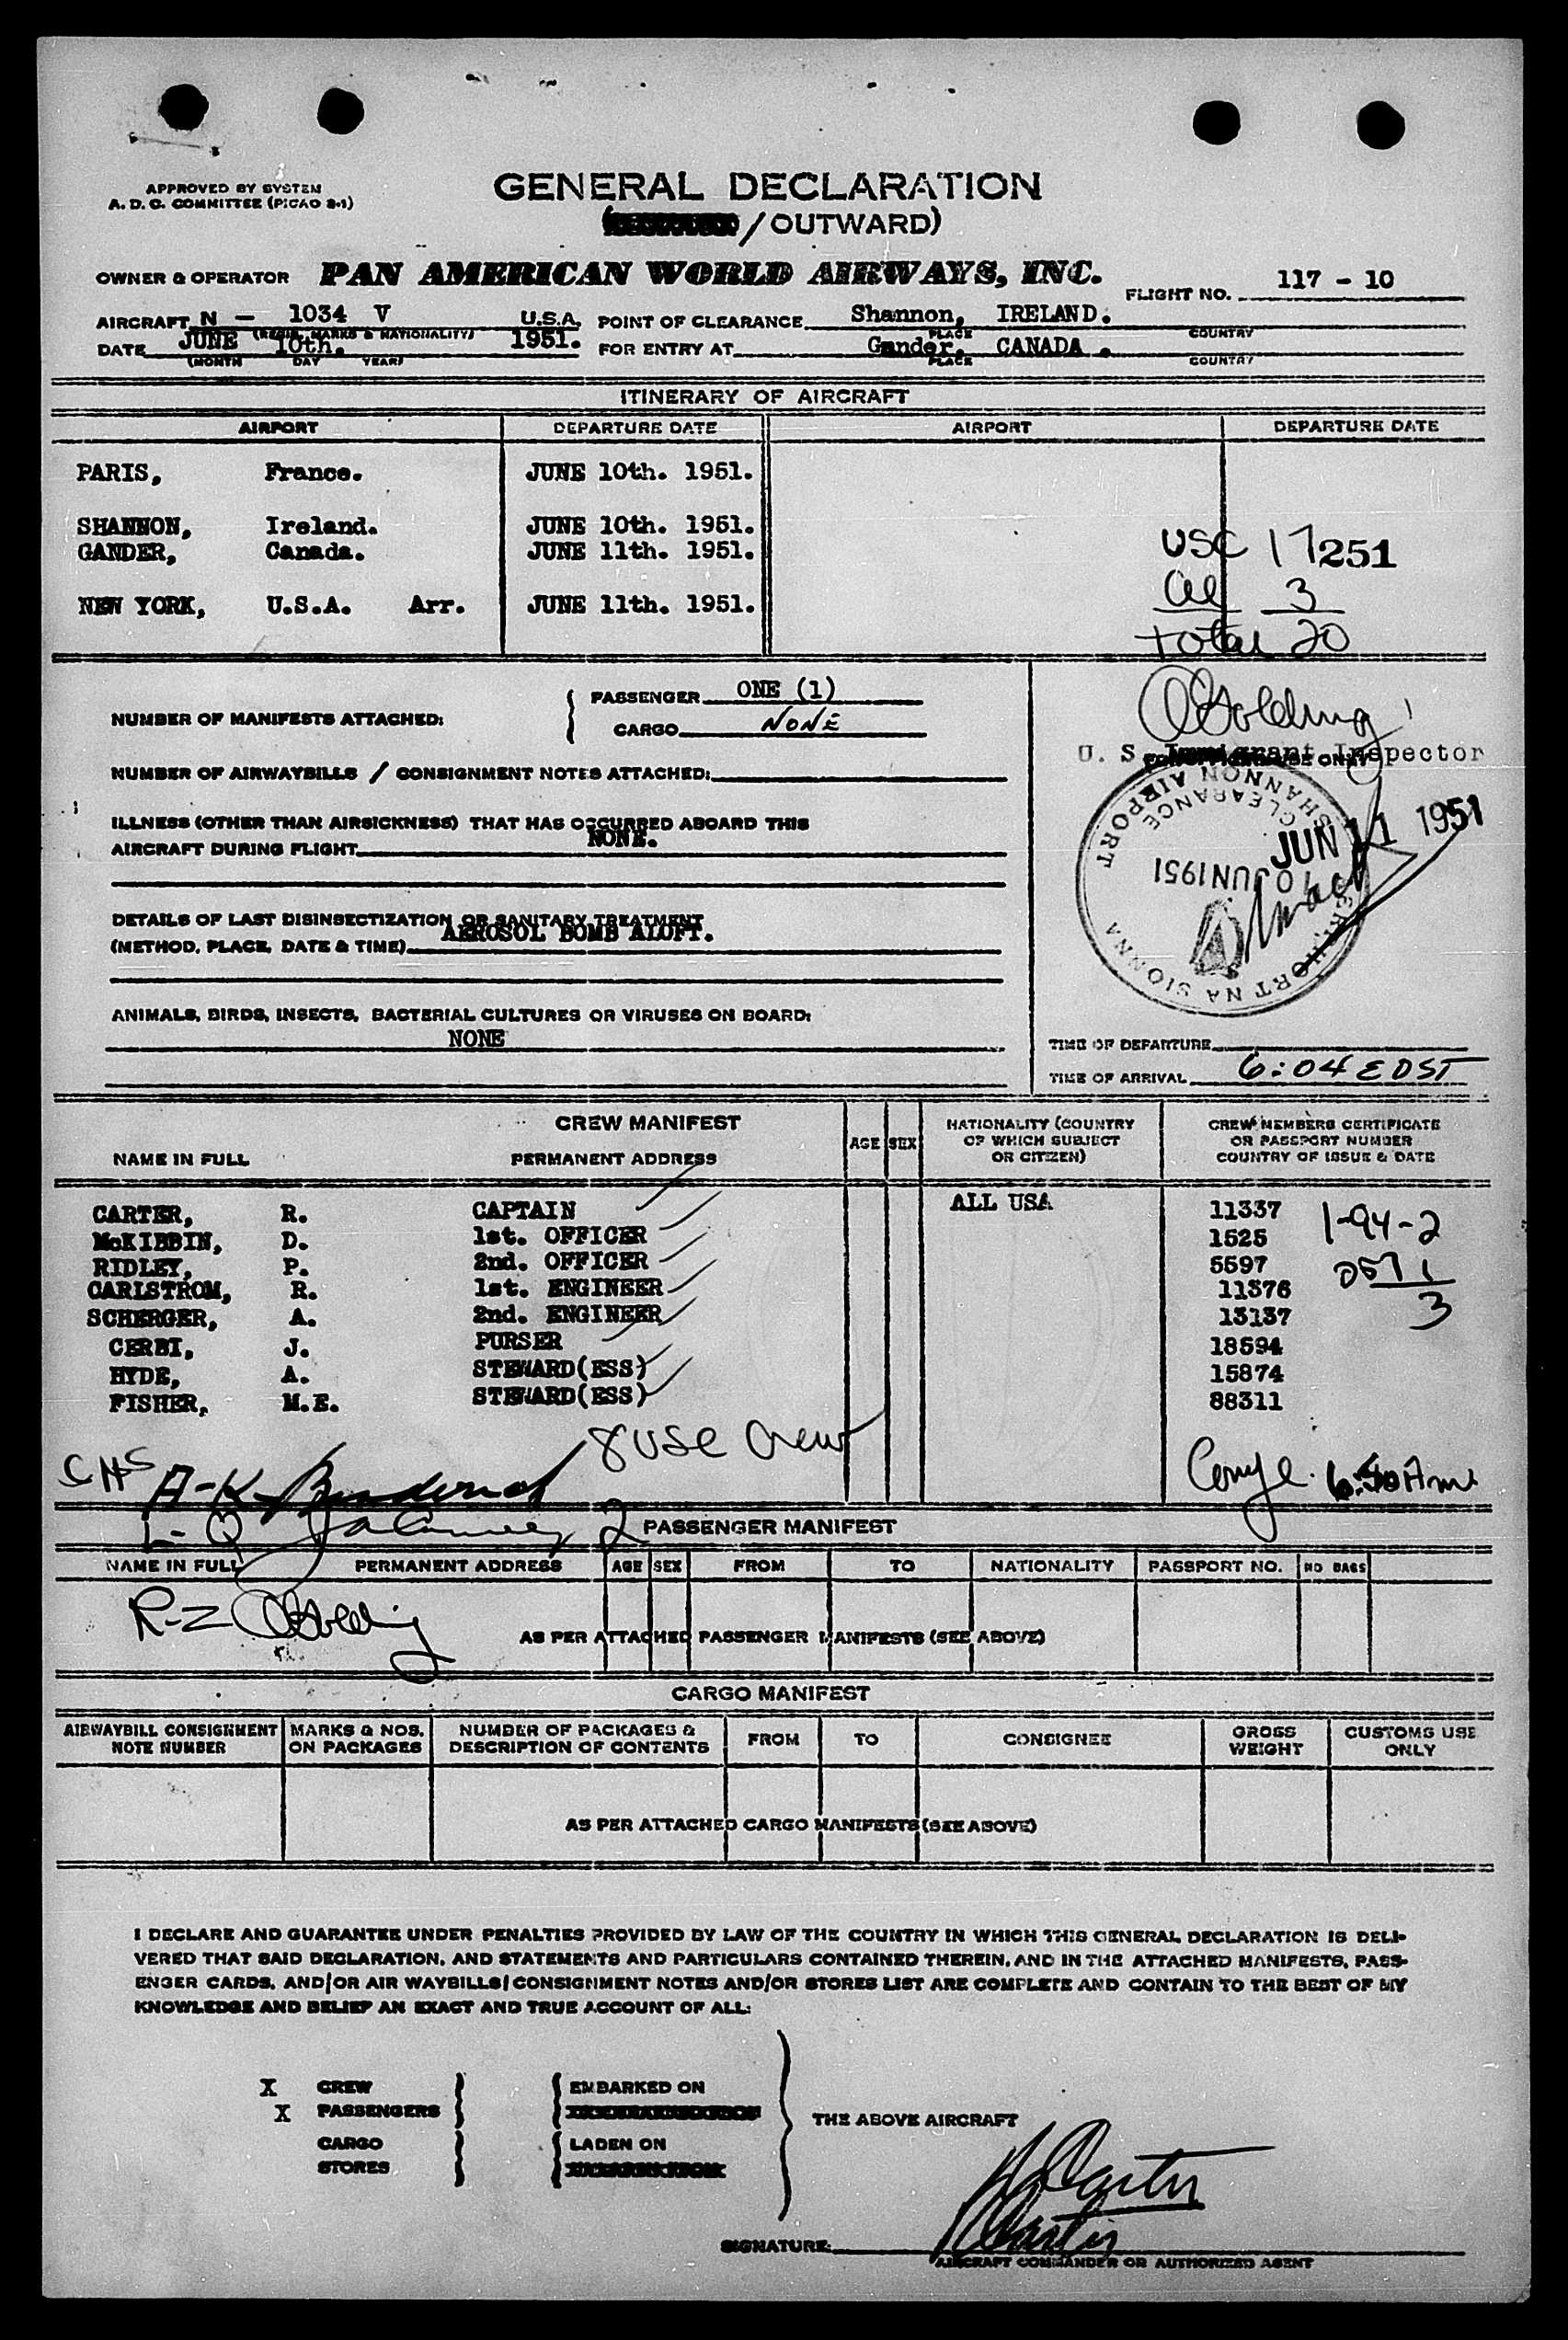 APPROVED BY SYSTEM
A. D. C. COMMITTEE (PICAO 2-1)
GENERAL DECLARATION
/OUTWARD)
OWNER & OPERATOR PAN AMERICAN WORLD AIRWAYS, INC. FLIGHT NO. 117 - 10
AIRCRAFT N - 1034 V U.S.A. POINT OF CLEARANCE Shannon, IRELAND.
(REGIS. MARKS & NATIONALITY) PLACE COUNTRY
DATE JUNE 10th. 1951. FOR ENTRY AT Gander, CANADA.
(MONTH DAY YEAR) PLACE COUNTRY
ITINERARY OF AIRCRAFT
AIRPORT DEPARTURE DATE AIRPORT DEPARTURE DATE
PARIS, France. JUNE 10th. 1951.
SHANNON, Ireland. JUNE 10th. 1951.
GANDER, Canada. JUNE 11th. 1951.
NEW YORK, U.S.A. Arr. JUNE 11th. 1951.
USC 17 251
3
Total 20
NUMBER OF MANIFESTS ATTACHED: PASSENGER ONE (1)
CARGO NONE
U. S. Immigrant Inspector
NUMBER OF AIRWAYBILLS / CONSIGNMENT NOTES ATTACHED:
ILLNESS (OTHER THAN AIRSICKNESS) THAT HAS OCCURRED ABOARD THIS
AIRCRAFT DURING FLIGHT NONE.
DETAILS OF LAST DISINSECTIZATION OR SANITARY TREATMENT
(METHOD, PLACE, DATE & TIME) AEROSOL BOMB ALOFT.
ANIMALS, BIRDS, INSECTS, BACTERIAL CULTURES OR VIRUSES ON BOARD:
NONE
SHANNON AIRPORT
CLEARANCE
10 JUN 1951
JUN 11 1951
AERPHORT NA SIONNA
TIME OF DEPARTURE
TIME OF ARRIVAL 6:04 EDST
CREW MANIFEST
NAME IN FULL PERMANENT ADDRESS AGE SEX NATIONALITY (COUNTRY OF WHICH SUBJECT OR CITIZEN) CREW MEMBERS CERTIFICATE OR PASSPORT NUMBER COUNTRY OF ISSUE & DATE
CARTER, R. CAPTAIN ALL USA 11337
McKIBBIN, D. 1st. OFFICER 1525
RIDLEY, P. 2nd. OFFICER 5597
CARLSTROM, R. 1st. ENGINEER 11376
SCHERGER, A. 2nd. ENGINEER 13137
CERBI, J. PURSER 18594
HYDE, A. STEWARD(ESS) 15874
FISHER, M.E. STEWARD(ESS) 88311
1-94-2
1
3
8 USC Crew
6:40 Am
PASSENGER MANIFEST
NAME IN FULL PERMANENT ADDRESS AGE SEX FROM TO NATIONALITY PASSPORT NO. NO BAGS
R-Z
AS PER ATTACHED PASSENGER MANIFESTS (SEE ABOVE)
CARGO MANIFEST
AIRWAYBILL CONSIGNMENT NOTE NUMBER MARKS & NOS. ON PACKAGES NUMBER OF PACKAGES & DESCRIPTION OF CONTENTS FROM TO CONSIGNEE GROSS WEIGHT CUSTOMS USE ONLY
AS PER ATTACHED CARGO MANIFESTS (SEE ABOVE)
I DECLARE AND GUARANTEE UNDER PENALTIES PROVIDED BY LAW OF THE COUNTRY IN WHICH THIS GENERAL DECLARATION IS DELI-
VERED THAT SAID DECLARATION, AND STATEMENTS AND PARTICULARS CONTAINED THEREIN, AND IN THE ATTACHED MANIFESTS, PASS-
ENGER CARDS, AND/OR AIR WAYBILLS/CONSIGNMENT NOTES AND/OR STORES LIST ARE COMPLETE AND CONTAIN TO THE BEST OF MY
KNOWLEDGE AND BELIEF AN EXACT AND TRUE ACCOUNT OF ALL:
X CREW EMBARKED ON
X PASSENGERS
THE ABOVE AIRCRAFT
CARGO LADEN ON
STORES
Carter
SIGNATURE: Carter
AIRCRAFT COMMANDER OR AUTHORIZED AGENT